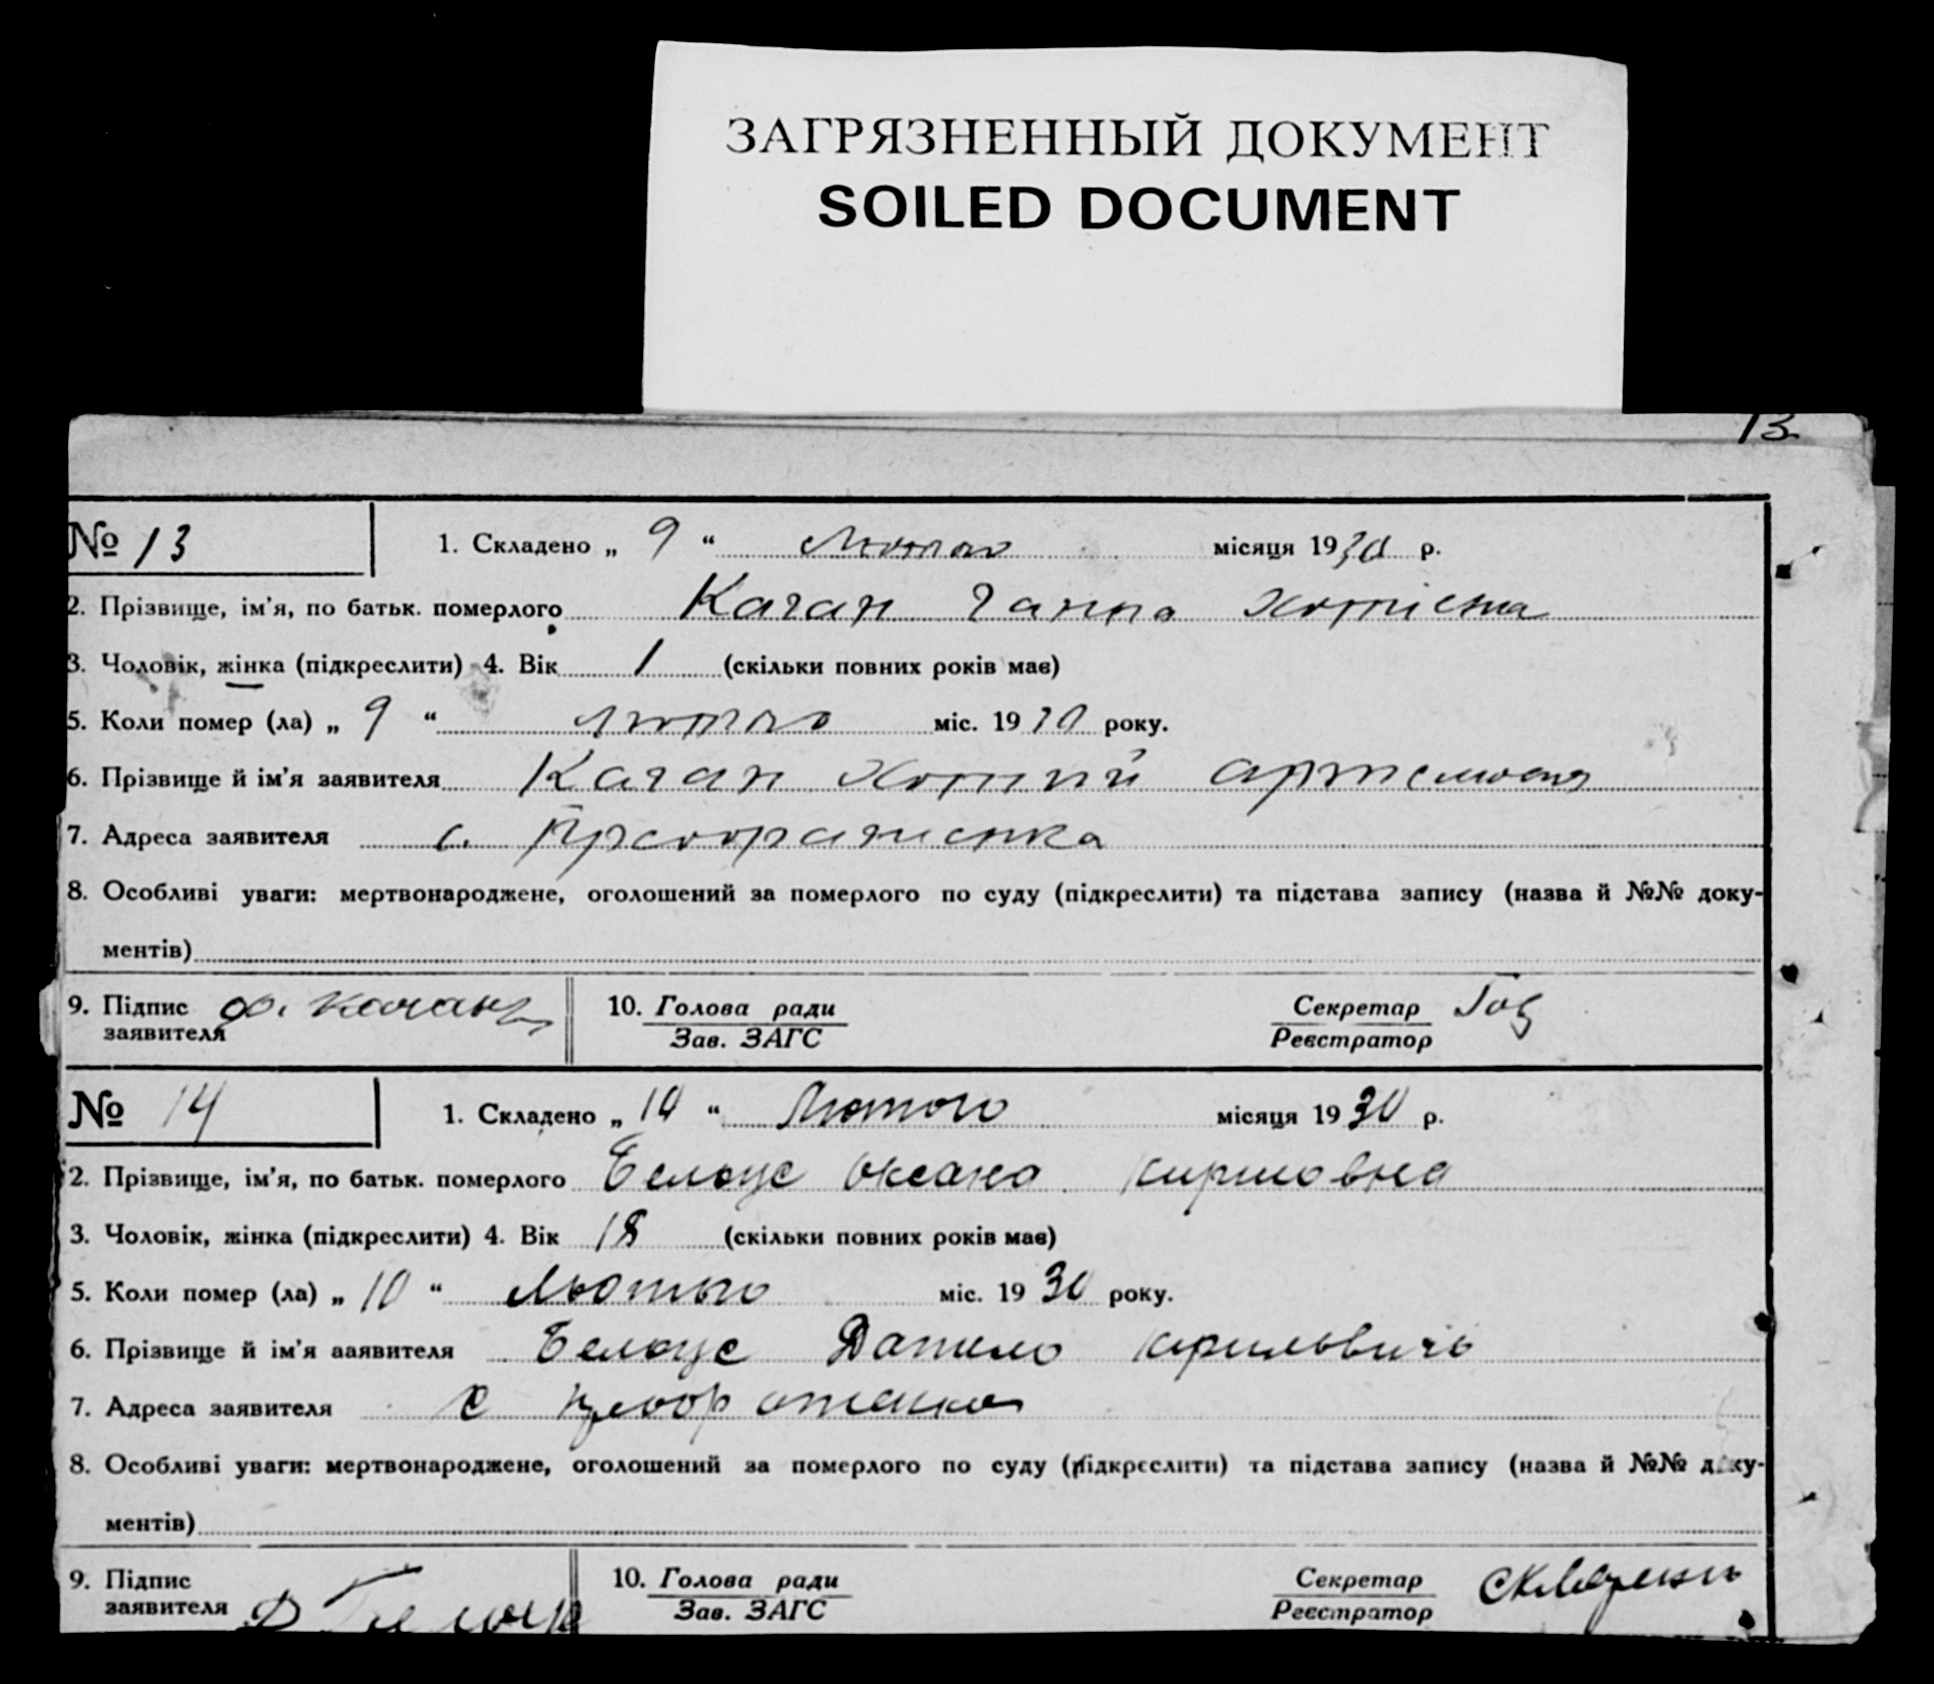 ЗАГРЯЗНЕННЫЙ ДОКУМЕНТ
SOILED DOCUMENT
13
№ 13
1. Складено „ 9 “ Лютого місяця 1930 р.
2. Прізвище, ім’я, по батьк. померлого Каган Ганна
3. Чоловік, жінка (підкреслити) 4. Вік 1 (скільки повних років має)
5. Коли помер (ла) „ 9 “ лютого міс. 1930 року.
6. Прізвище й ім’я заявителя Каган
7. Адреса заявителя с.
8. Особливі уваги: мертвонароджене, оголошений за померлого по суду (підкреслити) та підстава запису (назва й №№ доку-
ментів)
9. Підпис
заявителя
10. Голова ради
Зав. ЗАГС
Секретар
Реєстратор
№ 14
1. Складено „ 10 “ Лютого місяця 1930 р.
2. Прізвище, ім’я, по батьк. померлого Белоус Оксана Кириловна
3. Чоловік, жінка (підкреслити) 4. Вік 18 (скільки повних років має)
5. Коли помер (ла) „ 10 “ Лютого міс. 1930 року.
6. Прізвище й ім’я заявителя Белоус Данило
7. Адреса заявителя с
8. Особливі уваги: мертвонароджене, оголошений за померлого по суду (підкреслити) та підстава запису (назва й №№ доку-
ментів)
9. Підпис
заявителя
10. Голова ради
Зав. ЗАГС
Секретар
Реєстратор